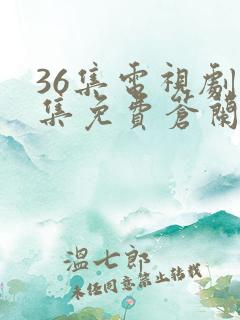 36集電視劇
集免費蒼蘭
溫七郎
未任同意禁止转载